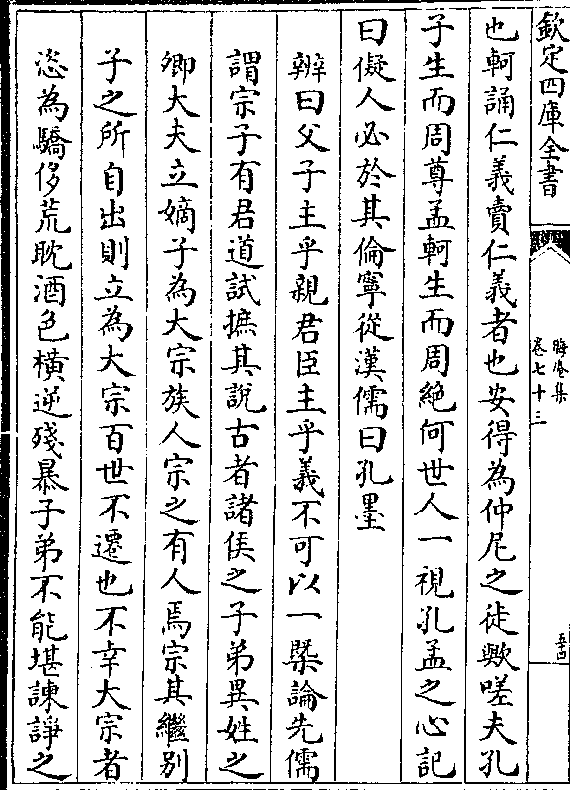 欽定四庫全書
晦庵集
卷七十三
五四
也軻誦仁義賣仁義者也安得為仲尼之徒歟嗟夫孔
子生而周尊孟軻生而周絶何世人一視孔孟之心記
曰儗人必於其倫寧從漢儒曰孔墨
辨曰父子主乎親君臣主乎義不可以一槩論先儒
謂宗子有君道試摭其說古者諸侯之子弟異姓之
卿大夫立嫡子為大宗族人宗之有人焉宗其繼别
子之所自出則立為大宗百世不遷也不幸大宗者
恣為驕侈荒耽酒色橫逆殘暴子弟不能堪諫諍之